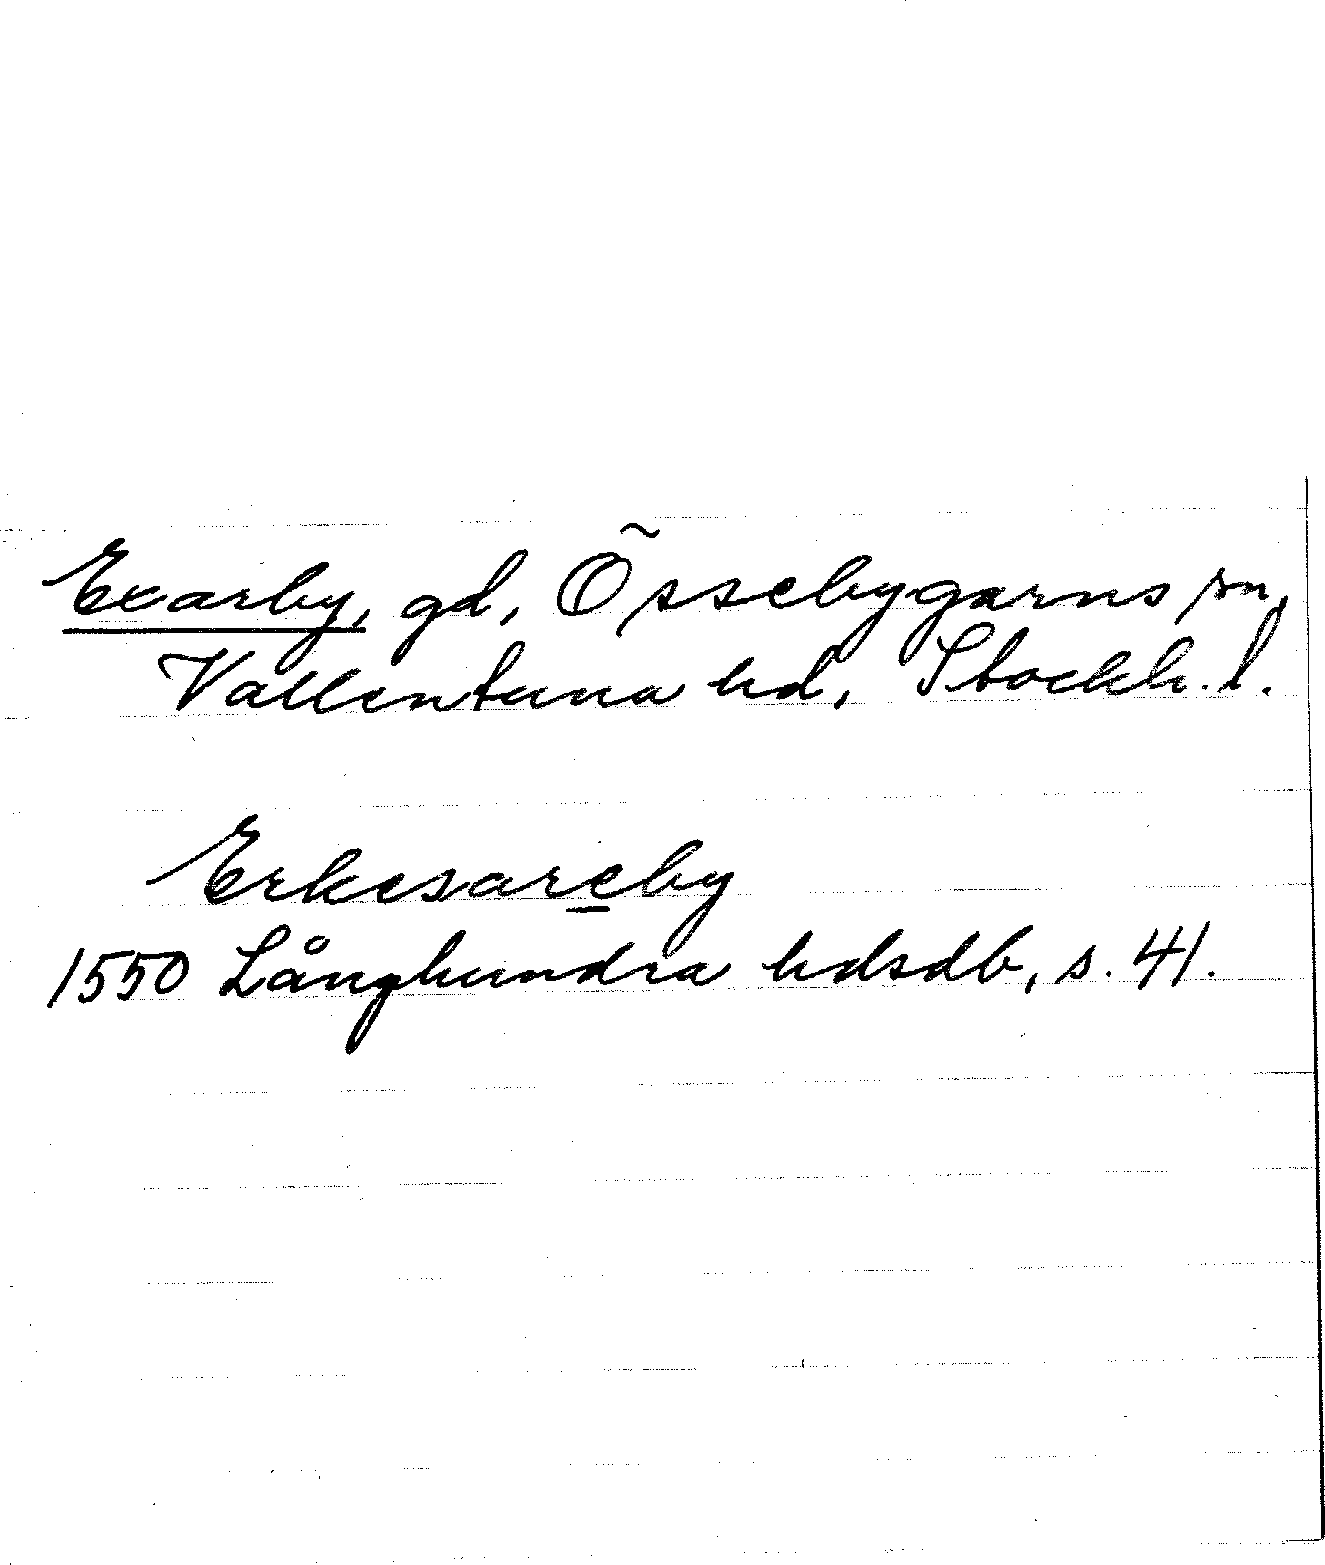 Exarby, gd, Össebygarns sn,
Vallentuna hd, Stockh. l.
Erkesareby
1550 Långhundra hdsdb, s. 41.